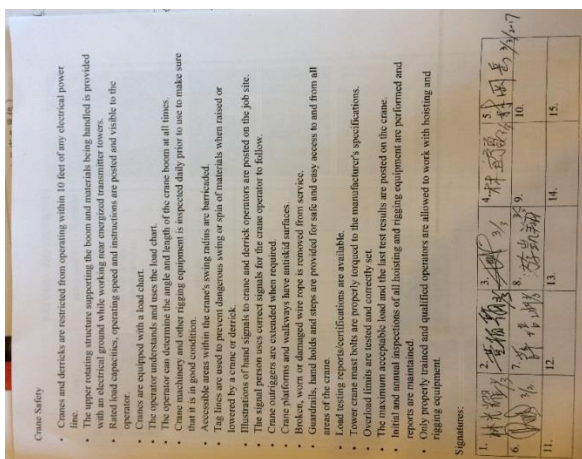 Crane Safety
• Cranes and derricks are restricted from operating within 10 feet of any electrical power
line.
• The upper rotating structure supporting the boom and materials being handled is provided
with an electrical ground while working near energized transmitter towers.
• Rated load capacities, operating speed and instructions are posted and visible to the
operator.
• Cranes are equipped with a load chart.
• The operator understands and uses the load chart.
• The operator can determine the angle and length of the crane boom at all times.
• Crane machinery and other rigging equipment is inspected daily prior to use to make sure
that it is in good condition.
• Accessible areas within the crane's swing radius are barricaded.
• Tag lines are used to prevent dangerous swing or spin of materials when raised or
lowered by a crane or derrick.
• Illustrations of hand signals to crane and derrick operators are posted on the job site.
• The signal person uses correct signals for the crane operator to follow.
• Crane outriggers are extended when required.
• Crane platforms and walkways have antiskid surfaces.
• Broken, worn or damaged wire rope is removed from service.
• Guardrails, hand holds and steps are provided for safe and easy access to and from all
areas of the crane.
• Load testing reports/certifications are available.
• Tower crane mast bolts are properly torqued to the manufacturer's specifications.
• Overload limits are tested and correctly set.
• The maximum acceptable load and the last test results are posted on the crane.
• Initial and annual inspections of all hoisting and rigging equipment are performed and
reports are maintained.
• Only properly trained and qualified operators are allowed to work with hoisting and
rigging equipment.
Signatures:
1. 2. 3. 3/3 4. 林 5. 3/3/2017
6. 3/3 7. 許 8. 游凱翔 9. 10.
11. 12. 13. 14. 15.